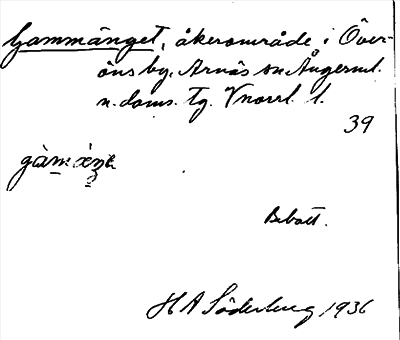 Gammänget, åkerområde i Över-
öns by, Arnäs sn Ångerml.
n. doms. Tg. Vnorrl. l.
39
gàm
Bebott.
H A Söderberg 1936